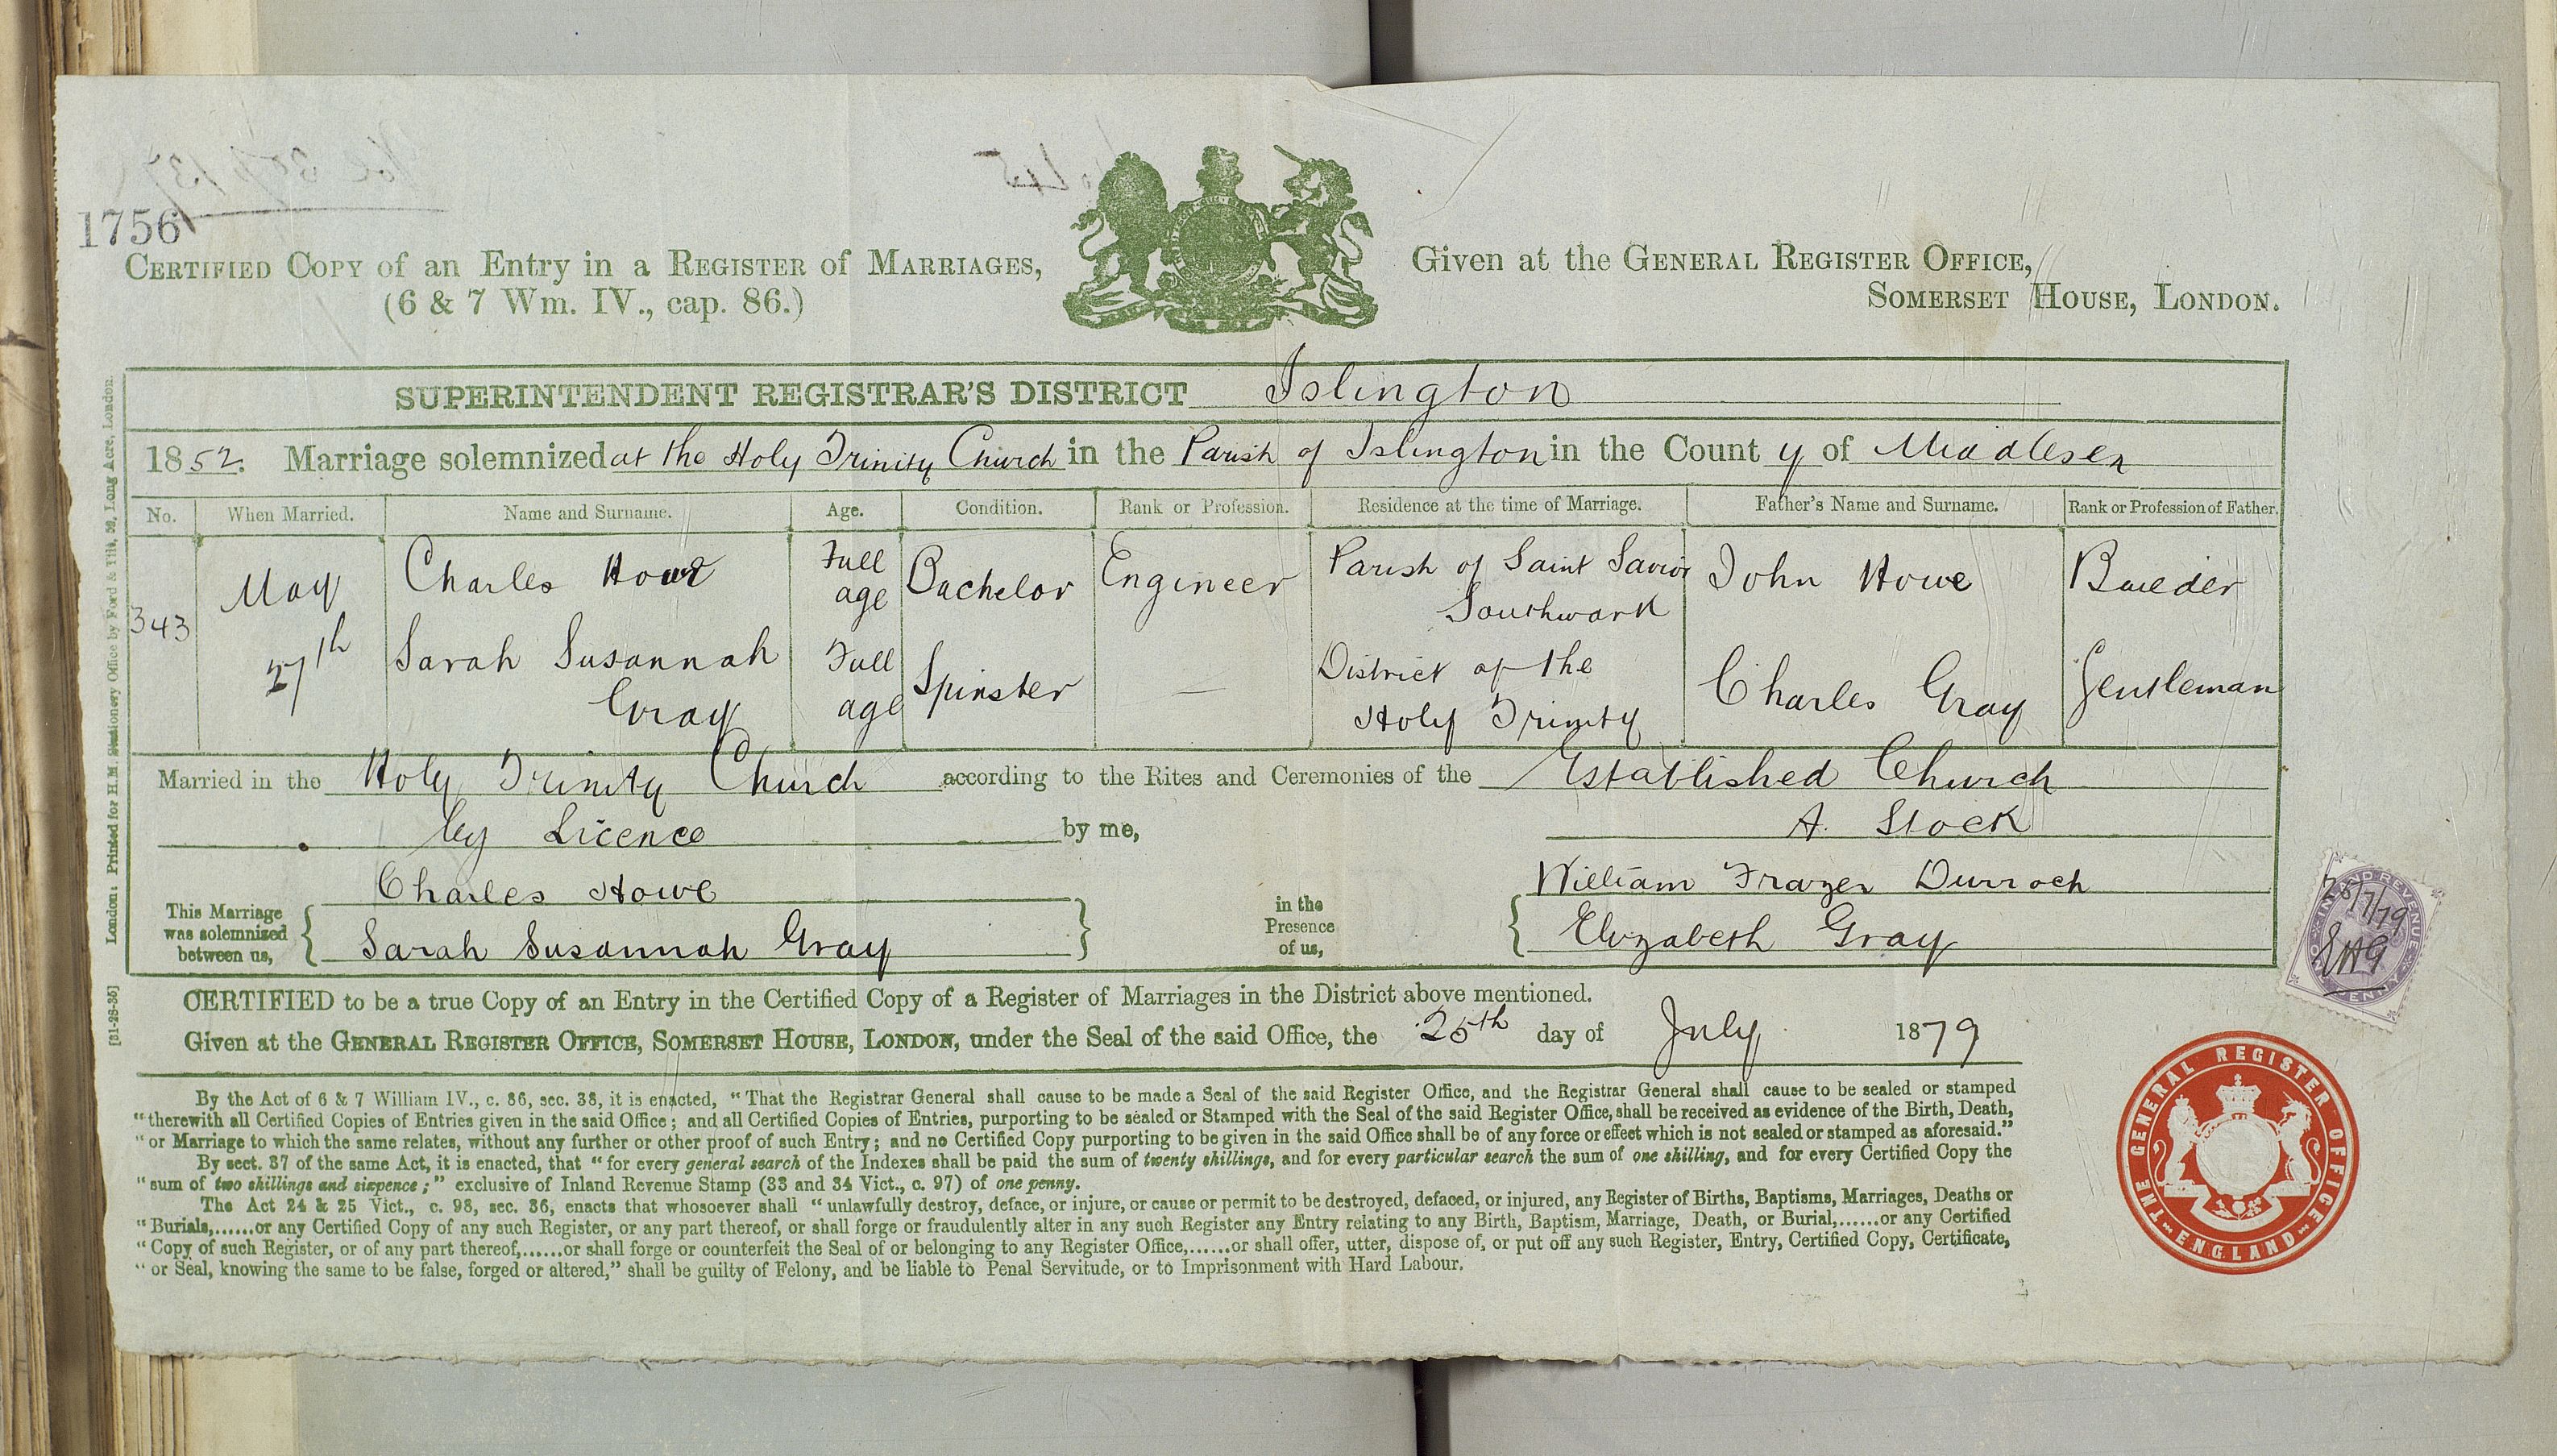 1756
CERTIFIED COPY of an Entry in a REGISTER of MARRIAGES,
(6 & 7 Wm. IV., cap. 86.)
Given at the GENERAL REGISTER OFFICE,
SOMERSET HOUSE, LONDON.
SUPERINTENDENT REGISTRAR'S DISTRICT Islington
1852. Marriage solemnized at the Holy Trinity Church in the Parish of Islington in the County of Middlesex
No. When Married. Name and Surname. Age. Condition. Rank or Profession. Residence at the time of Marriage. Father's Name and Surname. Rank or Profession of Father.
343 May 27th
Charles Howe Full age Bachelor Engineer Parish of Saint Savior Southwark John Howe Builder
Sarah Susannah Gray Full age Spinster — District of the Holy Trinity Charles Gray Gentleman
Married in the Holy Trinity Church according to the Rites and Ceremonies of the Established Church
by Licence by me, A. Stock
This Marriage was solemnized between us, { Charles Howe
Sarah Susannah Gray }
in the Presence of us, { William Frazer Durroch
Elizabeth Gray
CERTIFIED to be a true Copy of an Entry in the Certified Copy of a Register of Marriages in the District above mentioned.
Given at the GENERAL REGISTER OFFICE, SOMERSET HOUSE, LONDON, under the Seal of the said Office, the 25th day of July 1879
By the Act of 6 & 7 William IV., c. 86, sec. 38, it is enacted, "That the Registrar General shall cause to be made a Seal of the said Register Office, and the Registrar General shall cause to be sealed or stamped
"therewith all Certified Copies of Entries given in the said Office; and all Certified Copies of Entries, purporting to be sealed or Stamped with the Seal of the said Register Office, shall be received as evidence of the Birth, Death,
"or Marriage to which the same relates, without any further or other proof of such Entry; and no Certified Copy purporting to be given in the said Office shall be of any force or effect which is not sealed or stamped as aforesaid."
By sect. 37 of the same Act, it is enacted, that "for every general search of the Indexes shall be paid the sum of twenty shillings, and for every particular search the sum of one shilling, and for every Certified Copy the
"sum of two shillings and sixpence;" exclusive of Inland Revenue Stamp (33 and 34 Vict., c. 97) of one penny.
The Act 24 & 25 Vict., c. 98, sec. 36, enacts that whosoever shall "unlawfully destroy, deface, or injure, or cause or permit to be destroyed, defaced, or injured, any Register of Births, Baptisms, Marriages, Deaths or
"Burials,......or any Certified Copy of any such Register, or any part thereof, or shall forge or fraudulently alter in any such Register any Entry relating to any Birth, Baptism, Marriage, Death, or Burial,......or any Certified
"Copy of such Register, or of any part thereof,......or shall forge or counterfeit the Seal of or belonging to any Register Office,......or shall offer, utter, dispose of, or put off any such Register, Entry, Certified Copy, Certificate,
"or Seal, knowing the same to be false, forged or altered," shall be guilty of Felony, and be liable to Penal Servitude, or to Imprisonment with Hard Labour.
INLAND REVENUE
PENNY
25/7/79
THE GENERAL REGISTER OFFICE
ENGLAND
London: Printed for H.M. Stationery Office by Ford & Tilt, Long Acre, London.